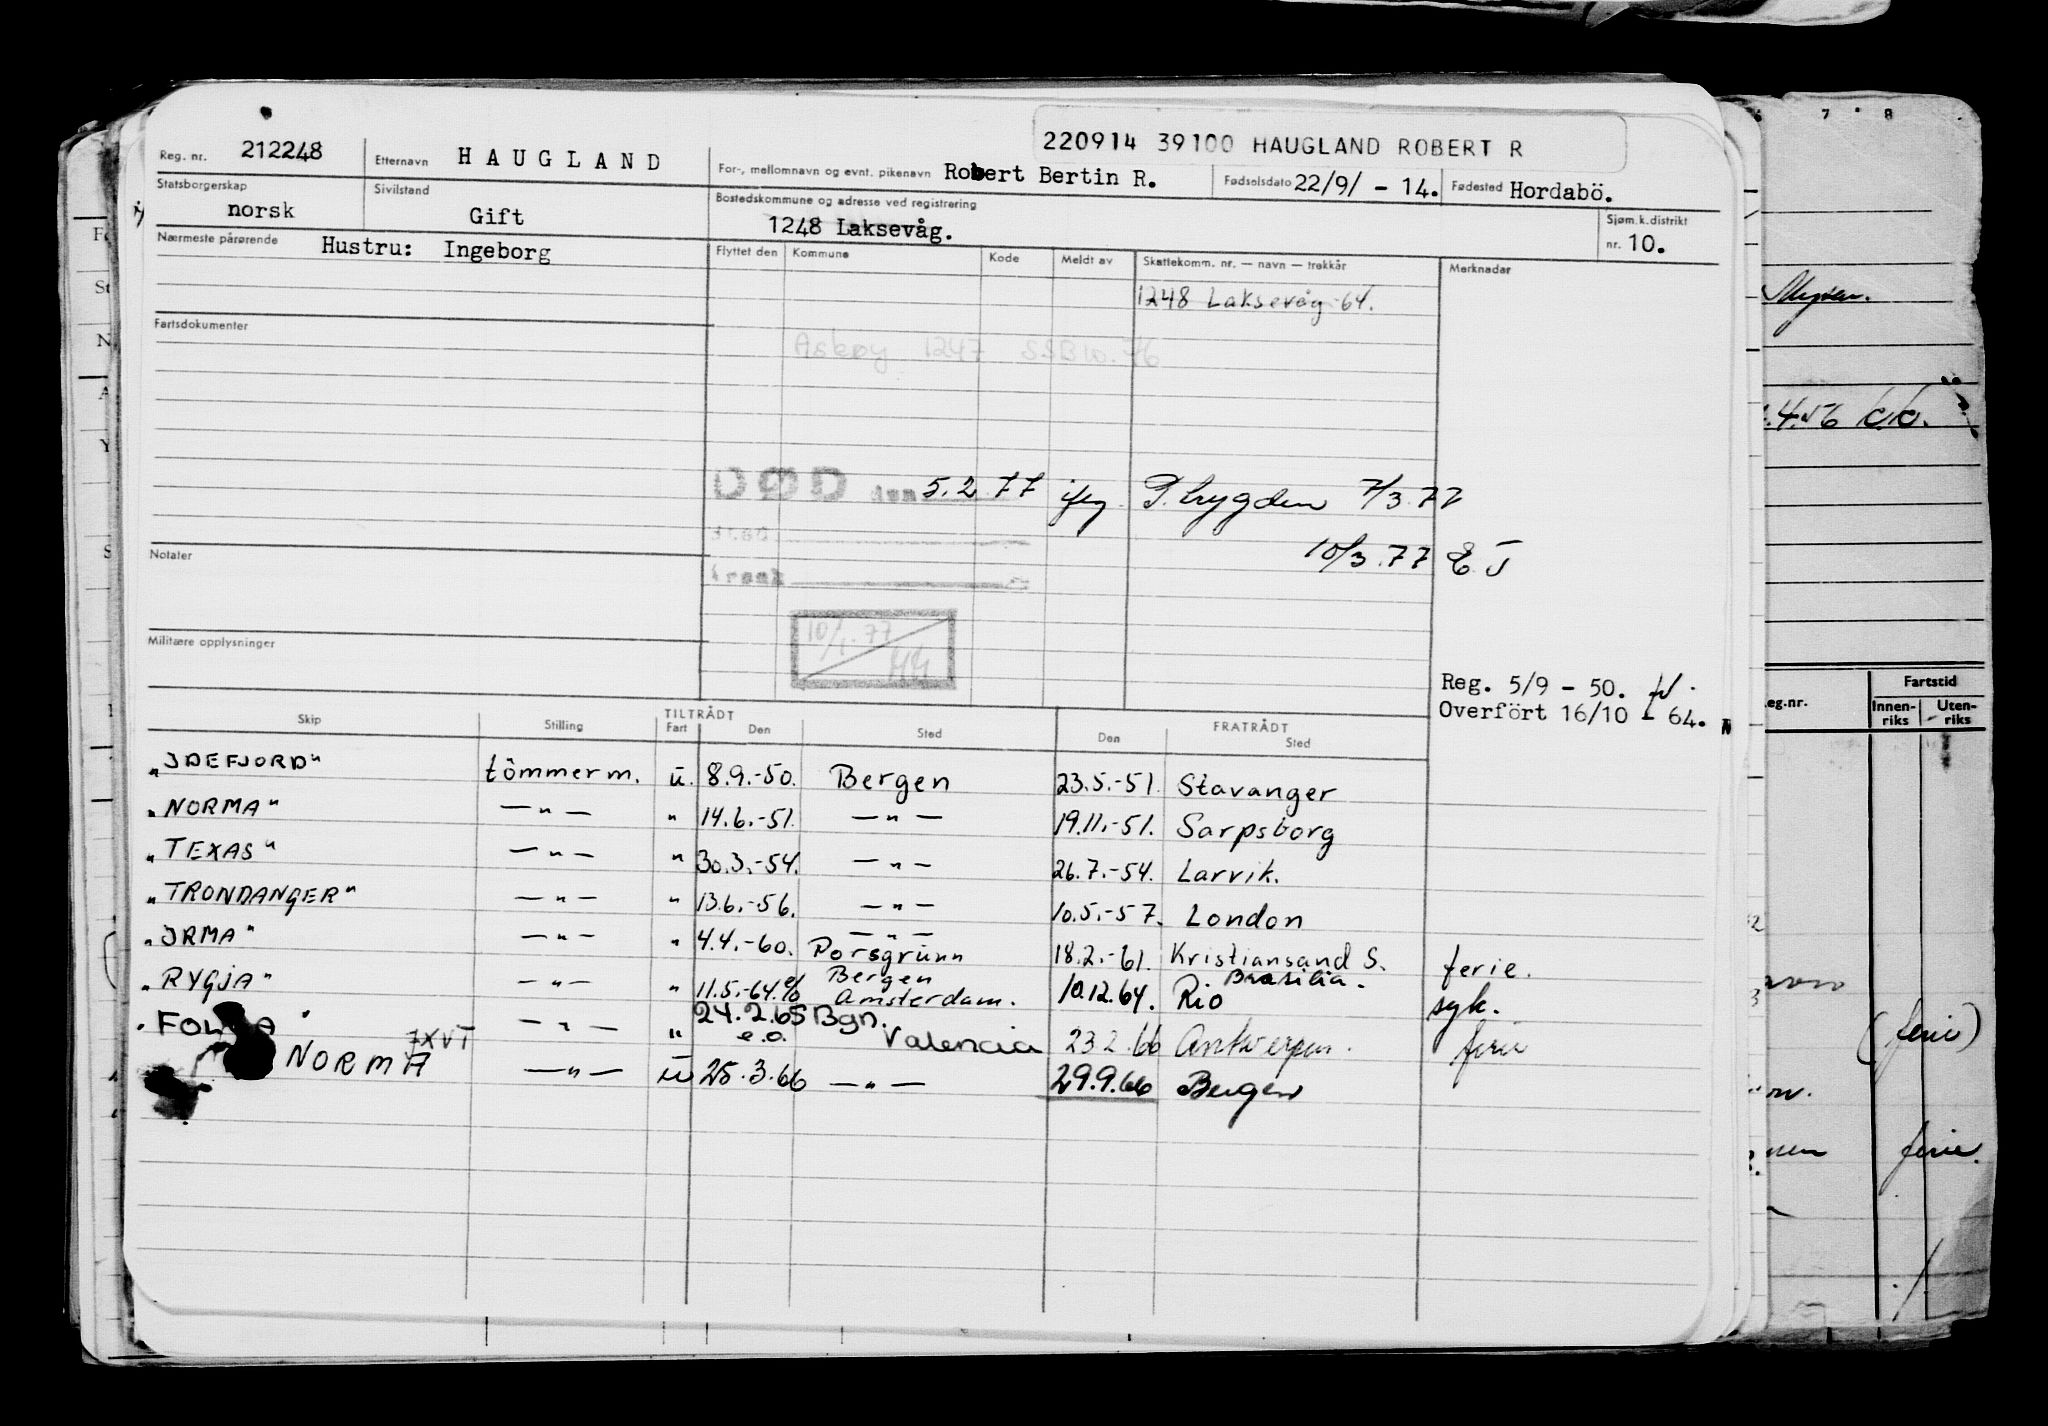 220914 39100 HAUGLAND ROBERT R
Reg. nr. 212248 Etternavn HAUGLAND For-, mellomnavn og evnt. pikenavn Robert Bertin R. Fødselsdato 22/9/ - 14. Fødested Hordabö.
Statsborgerskap norsk Sivilstand Gift Bostedskommune og adresse ved registrering 1248 Laksevåg. Sjøm.k.distrikt nr. 10.
Nærmeste pårørende Hustru: Ingeborg Flyttet den Kommune Kode Meldt av Skattekomm. nr. — navn — trekkår Merknader
1248 Laksevåg -64.
Fartsdokumenter
Askøy 1247 SSB 10.76
DØD den 5.2.77 Trygden 7/3.77
10/3.77 E J
Notater
10/1.77
Militære opplysninger
Reg. 5/9 - 50.
Overfört 16/10 - 64.
Skip Stilling TILTRÅDT Fart Den Sted FRATRÅDT Den Sted
"IDEFJORD" tömmerm. u. 8.9.-50. Bergen 23.5.-51. Stavanger
"NORMA" — " — " 14.6.-51. — " — 19.11.-51. Sarpsborg
"TEXAS" — " — " 30.3.-54. — " — 26.7.-54. Larvik.
"TRONDANGER" — " — " 13.6.-56. — " — 10.5.-57. London
"IRMA" — " — " 4.4.-60. — " — Porsgrunn 18.2.-61. Kristiansand S. ferie.
"RYGJA" — " — " 11.5.-64. Bergen Amsterdam. 10.12.64. Rio Brasilia. syk.
— " — " 24.2.65 e.o. Bgn. Valencia 23.2.66 Antwerpen. ferie
NORMA JXVT — " — u 25.3.66 — " — 29.9.66 Bergen
7 8
Mysen.
4.56
eg.nr. Fartstid
Innen-riks Uten-riks
(ferie)
ferie.